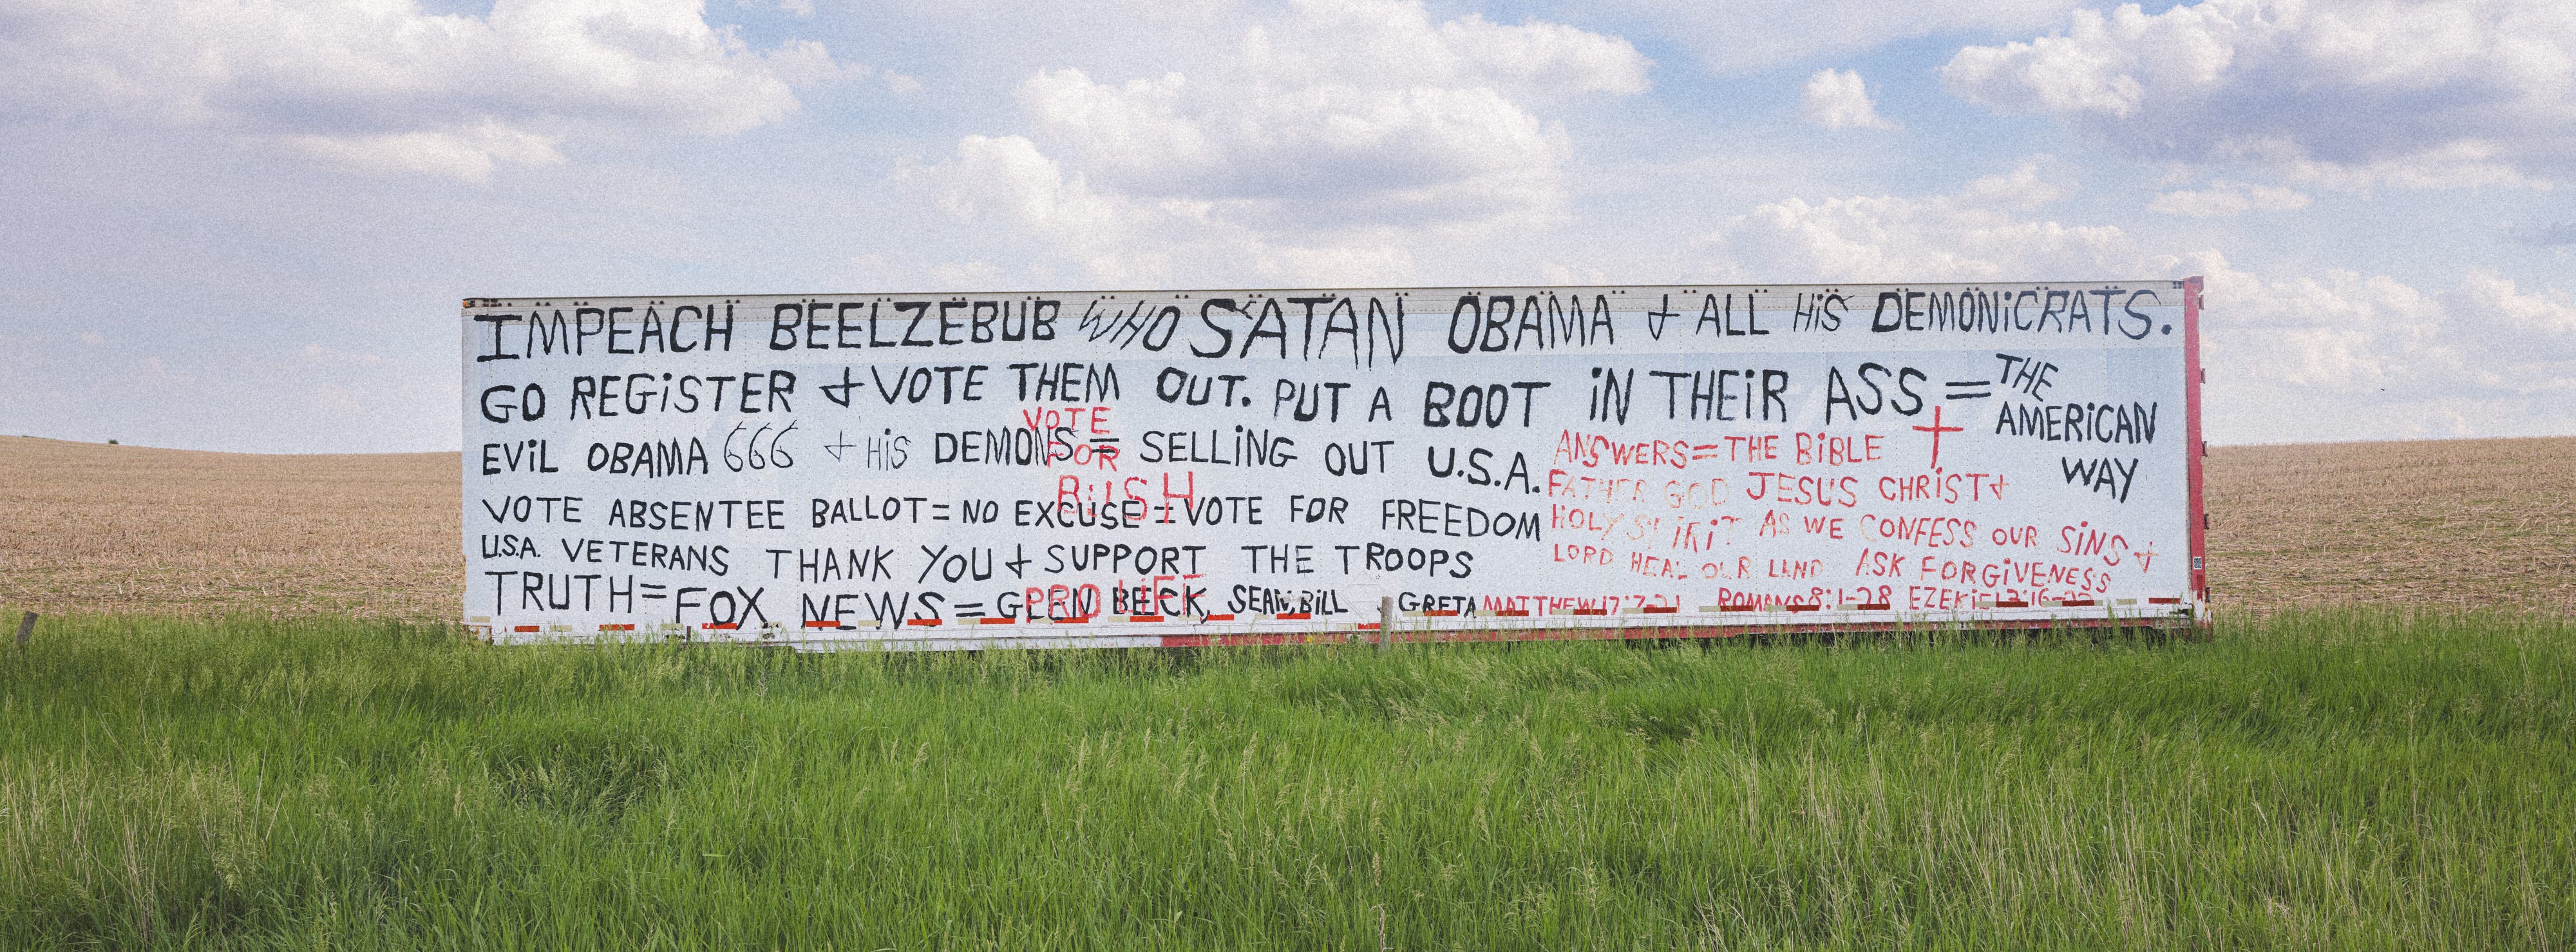 IMPEACH BEELZEBUB WHO SATAN OBAMA & ALL HiS DEMONiCRATS.
GO REGiSTER & VOTE THEM OUT. PUT A BOOT iN THEiR ASS = THE AMERiCAN WAY
EViL OBAMA 666 & HiS DEMONS = SELLiNG OUT U.S.A.
VOTE ABSENTEE BALLOT = NO EXCUSE = VOTE FOR FREEDOM
U.S.A. VETERANS THANK YOU & SUPPORT THE TROOPS
TRUTH = FOX NEWS = GLEN BECK, SEAN, BiLL GRETA
VOTE
FOR
BUSH
PRO LiFE
ANSWERS = THE BiBLE
FATHER GOD JESUS CHRiST &
HOLY SPiRiT AS WE CONFESS OUR SiNS &
LORD HEAL OUR LAND ASK FORGiVENESS
MATTHEW 17:7-21 ROMANS 8:1-28 EZEKiEL